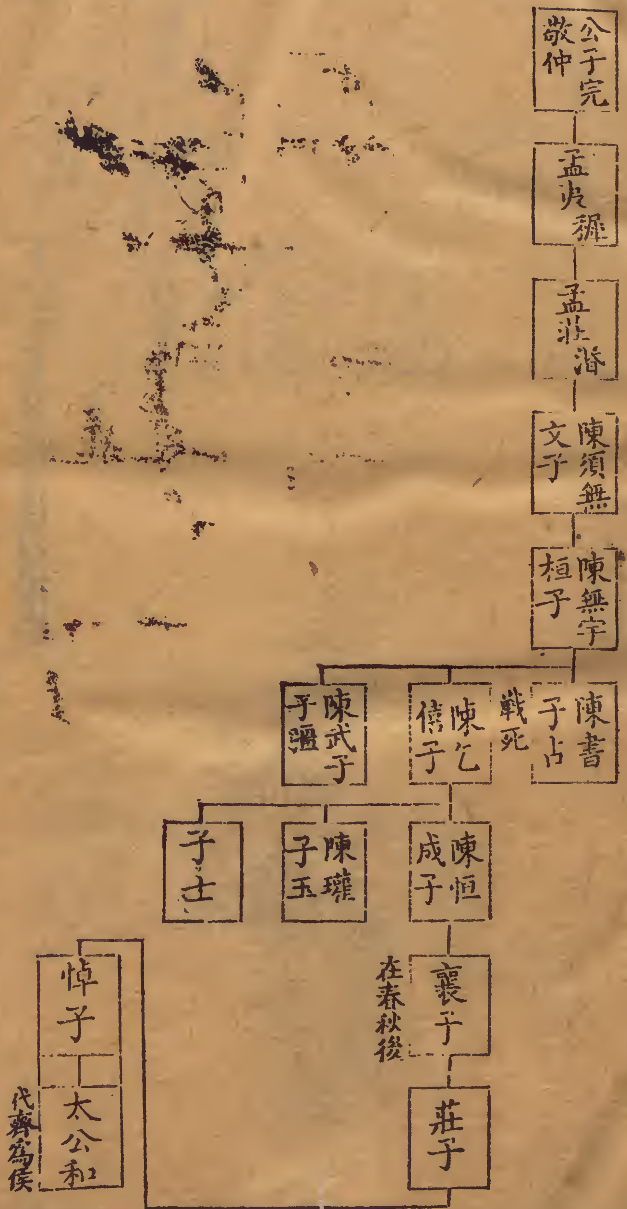 公子完
敬仲
孟夷穉
孟莊湣
陳須無
文子
陳無宇
桓子
陳書
子占
戰死
陳乞
僖子
陳武子
子彊
陳恒
成子
陳瓘
子玉
子士
襄子
在春秋後
莊子
悼子
太公和
代齊為侯